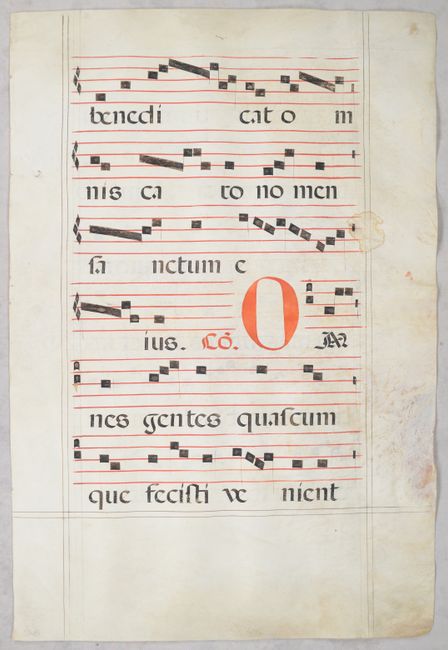 benedi cat o m
nis ca ro no men
sa nctum e
ius. Cõ. OM
nes gentes quascum
que fecisti ve nient